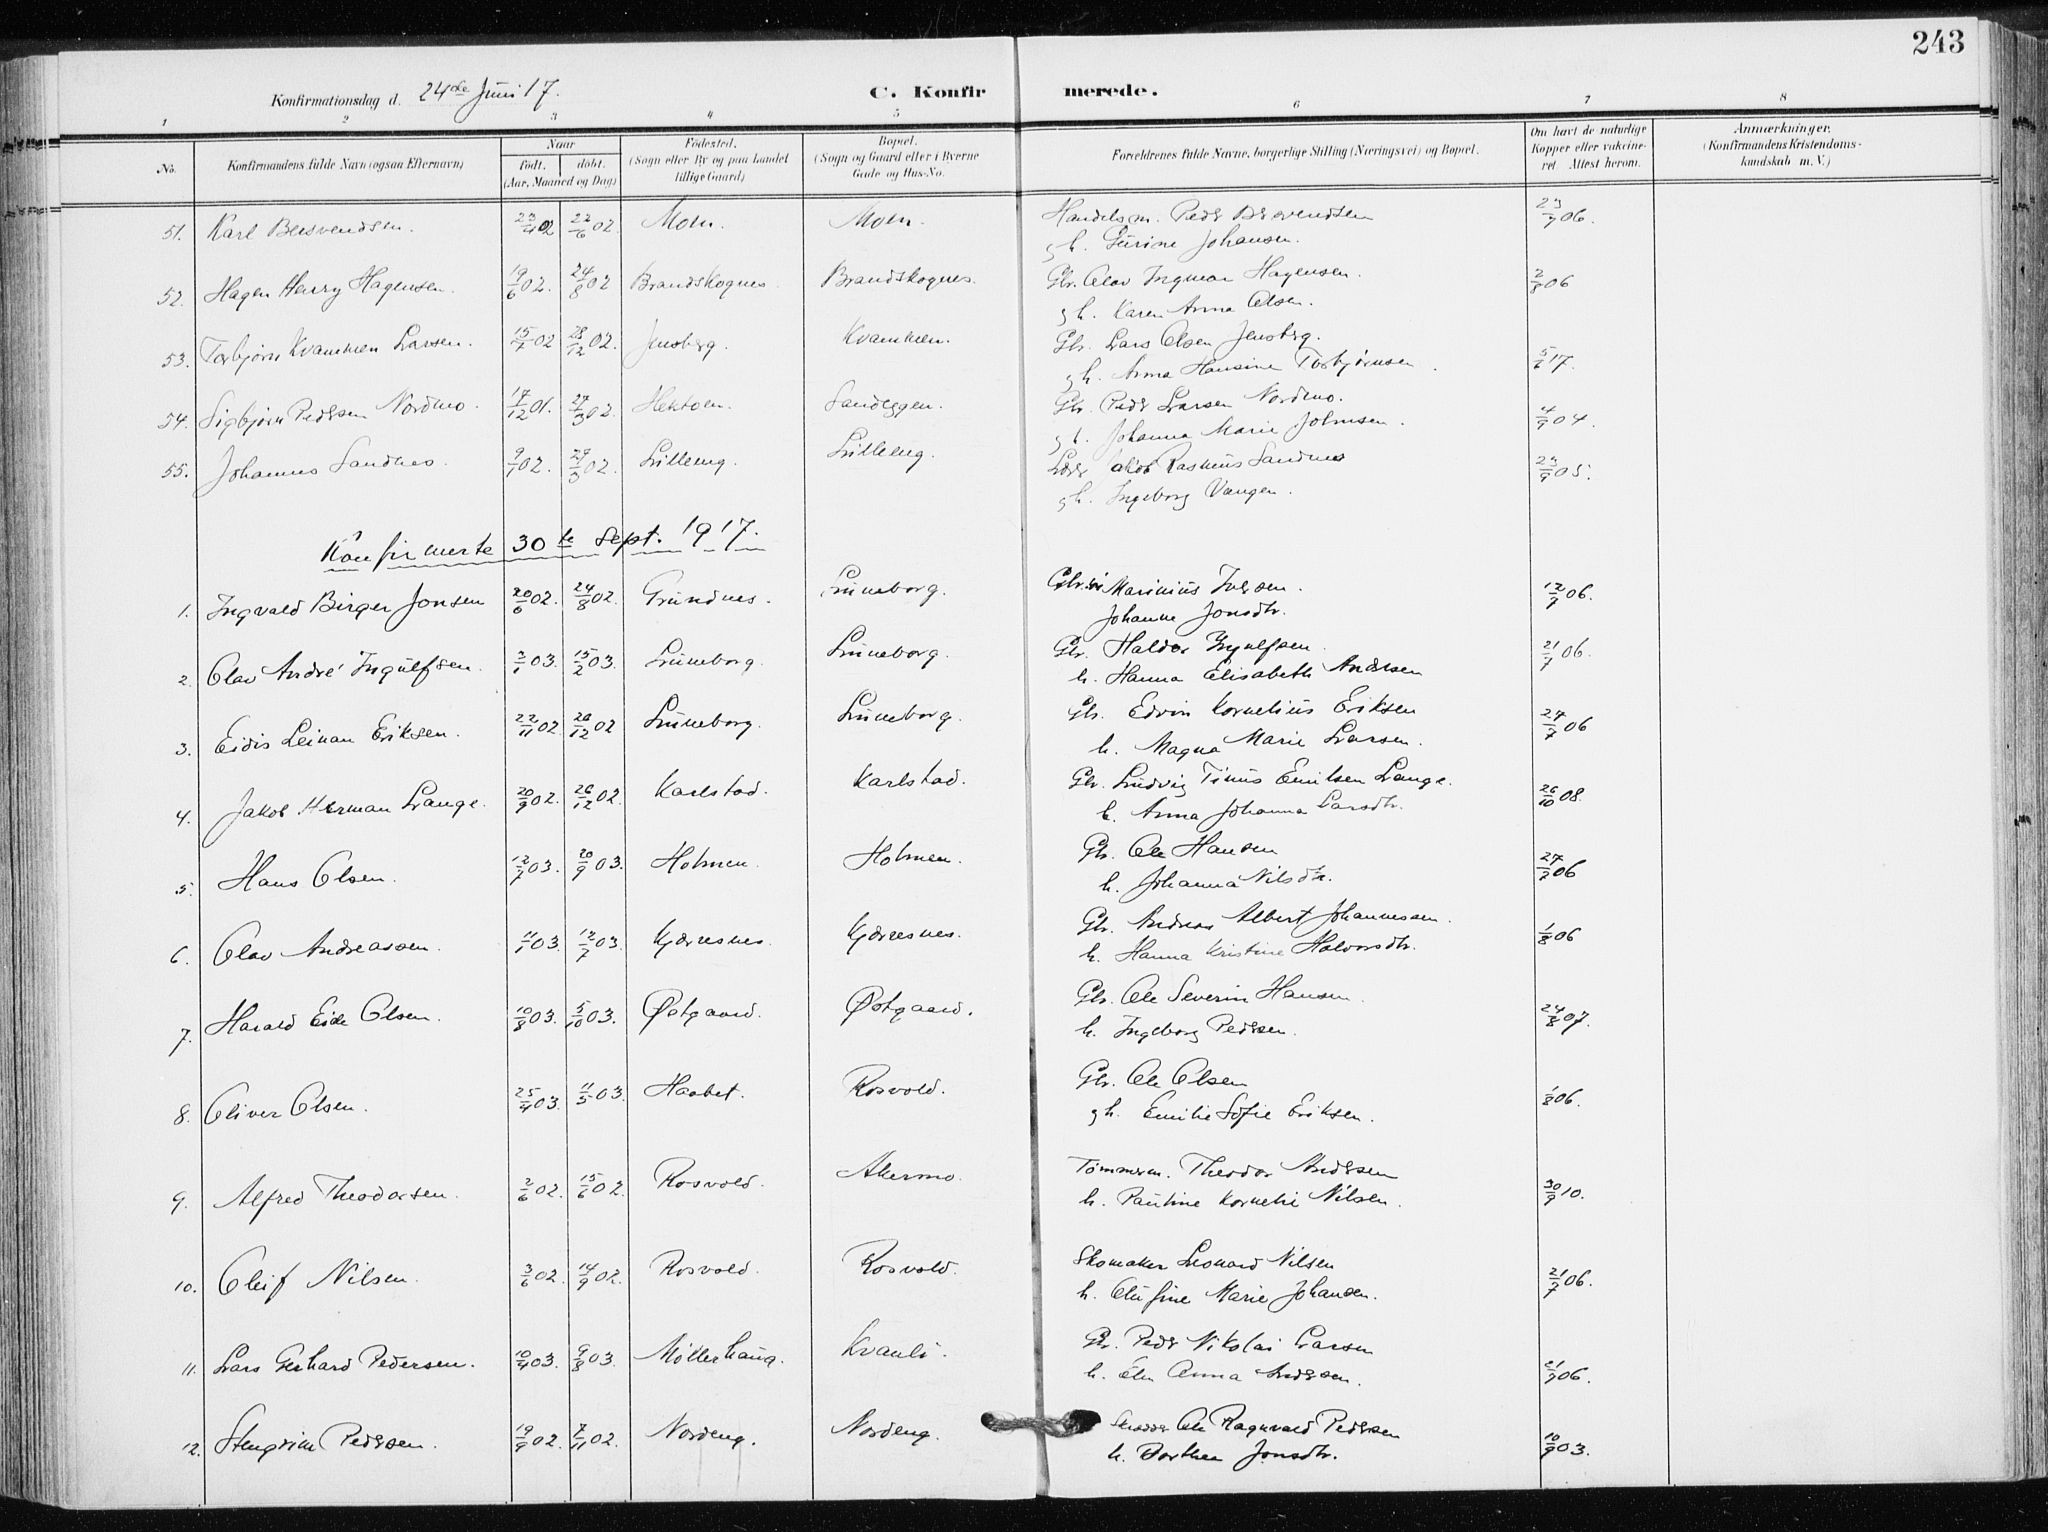 243
Konfirmationsdag d. 24de Juni 17.
C. Konfirmerede.
1 2 3 4 5 6 7 8
No.
Konfirmandens fulde Navn (ogsaa Efternavn)
Naar
født. døbt.
(Aar, Maaned og Dag)
Fødested.
(Sogn eller By og paa Landet
tillige Gaard)
Bopæl.
(Sogn og Gaard eller i Byerne
Gade og Hus-No.
Forældrenes fulde Navne, borgerlige Stilling (Næringsvei) og Bopæl.
Om havt de naturlige
Kopper eller vakcine-
ret. Attest herom.
Anmærkninger.
(Konfirmandens Kristendoms-
kundskab m. V.)
51. Karl Bersvendsen. 23/4 02 22/6 02. Moen. Moen. Handelsm. Peder Bersvendsen 06.
gh. Gurine Johansen.
52. Hagen Henry Hagensen. 19/6 02. 24/8 02 Brandskognes. Brandskognes. Gbr. Olav Ingmar Hagensen. 2/8 06
gh. Karen Anna Olsen.
53. Torbjørn Kvammen Larsen. 15/7 02 28/12 02. Jensberg. Kvammen. Gbr. Lars Olsen Jensberg. 5/6 17.
gh. Anna Hansine Torbjørnsen.
54. Sigbjørn Pedersen Nordmo. 17/12 01. 27/3 02. Hektoen. Sandeggen. Gbr. Peder Larsen Nordmo. 4/9 04.
gh. Johanna Marie Johnsen.
55. Johannes Sandnes. 9/1 02. 29/3 02. Lilleeng. Lilleeng. Lærer Jakob Rasmus Sandnes 23/9 05.
gh. Ingeborg Vangen.
Konfirmerte 30te Sept. 1917.
1. Ingvald Birger Jonsen 20/6 02. 24/8 02. Grundnes. Luneborg. Marinius Iversen. 12/7 06.
Johanne Jonsdtr.
2. Olav André Ingulfsen. 3/1 03. 15/2 03. Luneborg. Luneborg. Gbr. Haldor Ingulfsen. 21/7 06.
h. Hanna Elisabeth Andersen
3. Eidis Leinan Eriksen. 22/11 02. 26/12 02 Luneborg. Luneborg. Gbr. Edvin Kornelius Eriksen 27/7 06
h. Magna Marie Larsen.
4. Jakob Herman Lange. 20/9 02. 26/12 02. Karlstad. Karlstad. Gbr. Ludvig Tinus Emilsen Lange. 26/10 08.
h. Anna Johanna Larsdtr.
5. Hans Olsen. 12/7 03. 20/9 03. Holmen. Holmen. Gbr. Ole Hansen 27/7 06
h. Johanna Nilsdtr.
6. Olav Andreassen. 11/1 03. 12/7 03. Kjærresnes. Kjærresnes. Gbr. Andreas Albert Johannessen. 1/8 06
h. Hanna Kristine Halvorsdtr.
7. Harald Eide Olsen. 10/8 03. 5/10 03. Østgaard. Østgaard. Gbr. Ole Severin Hansen. 24/8 07.
h. Ingeborg Pedersen.
8. Oliver Olsen. 25/4 03. 11/5 03. Haabet. Rosvold. Gbr. Ole Olsen 1/8 06.
gh. Emilie Sofie Eriksen.
9. Alfred Theodorsen. 2/6 02. 15/6 02. Rosvold. Akermo. Tømmerm. Theodor Andersen 30/9 10.
h. Pauline Kornelie Nilsen.
10. Oleif Nilsen. 3/6 02. 14/9 02. Rosvold. Rosvold. Skomaker Leonard Nilsen 21/7 06.
h. Olufine Marie Johansen.
11. Lars Gerhard Pedersen. 10/4 03. 9/8 03. Møllerhaug. Kvanli. Gbr. Peder Nikolai Larsen 06.
h. Elen Anna Andersen.
12. Stengrim Pedersen. 19/9 02. 7/11 02. Nordeng. Nordeng. Skrædder Ole Ragnvald Pedersen 10/9 03.
h. Dorthea Jonsdtr.